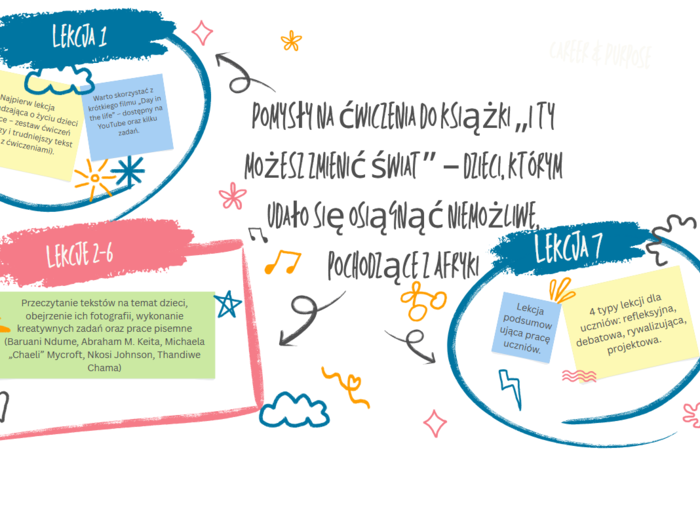 LEKCJA 1
CAREER & PURPOSE
Najpierw lekcja
dzająca o życiu dzieci
ce – zestaw ćwiczeń
zy i trudniejszy tekst
z ćwiczeniami).
Warto skorzystać z
krótkiego filmu „Day in
the life” – dostępny na
YouTube oraz kilku
zadań.
POMYSŁY NA ĆWICZENIA DO KSIĄŻKI „I TY
MOŻESZ ZMIENIĆ ŚWIAT” – DZIECI, KTÓRYM
UDAŁO SIĘ OSIĄGNĄĆ NIEMOŻLIWE,
POCHODZĄCE Z AFRYKI
LEKCJE 2-6
Przeczytanie tekstów na temat dzieci,
obejrzenie ich fotografii, wykonanie
kreatywnych zadań oraz prace pisemne
(Baruani Ndume, Abraham M. Keita, Michaela
„Chaeli” Mycroft, Nkosi Johnson, Thandiwe
Chama)
LEKCJA 7
Lekcja
podsumow
ująca pracę
uczniów.
4 typy lekcji dla
uczniów: refleksyjna,
debatowa, rywalizująca,
projektowa.